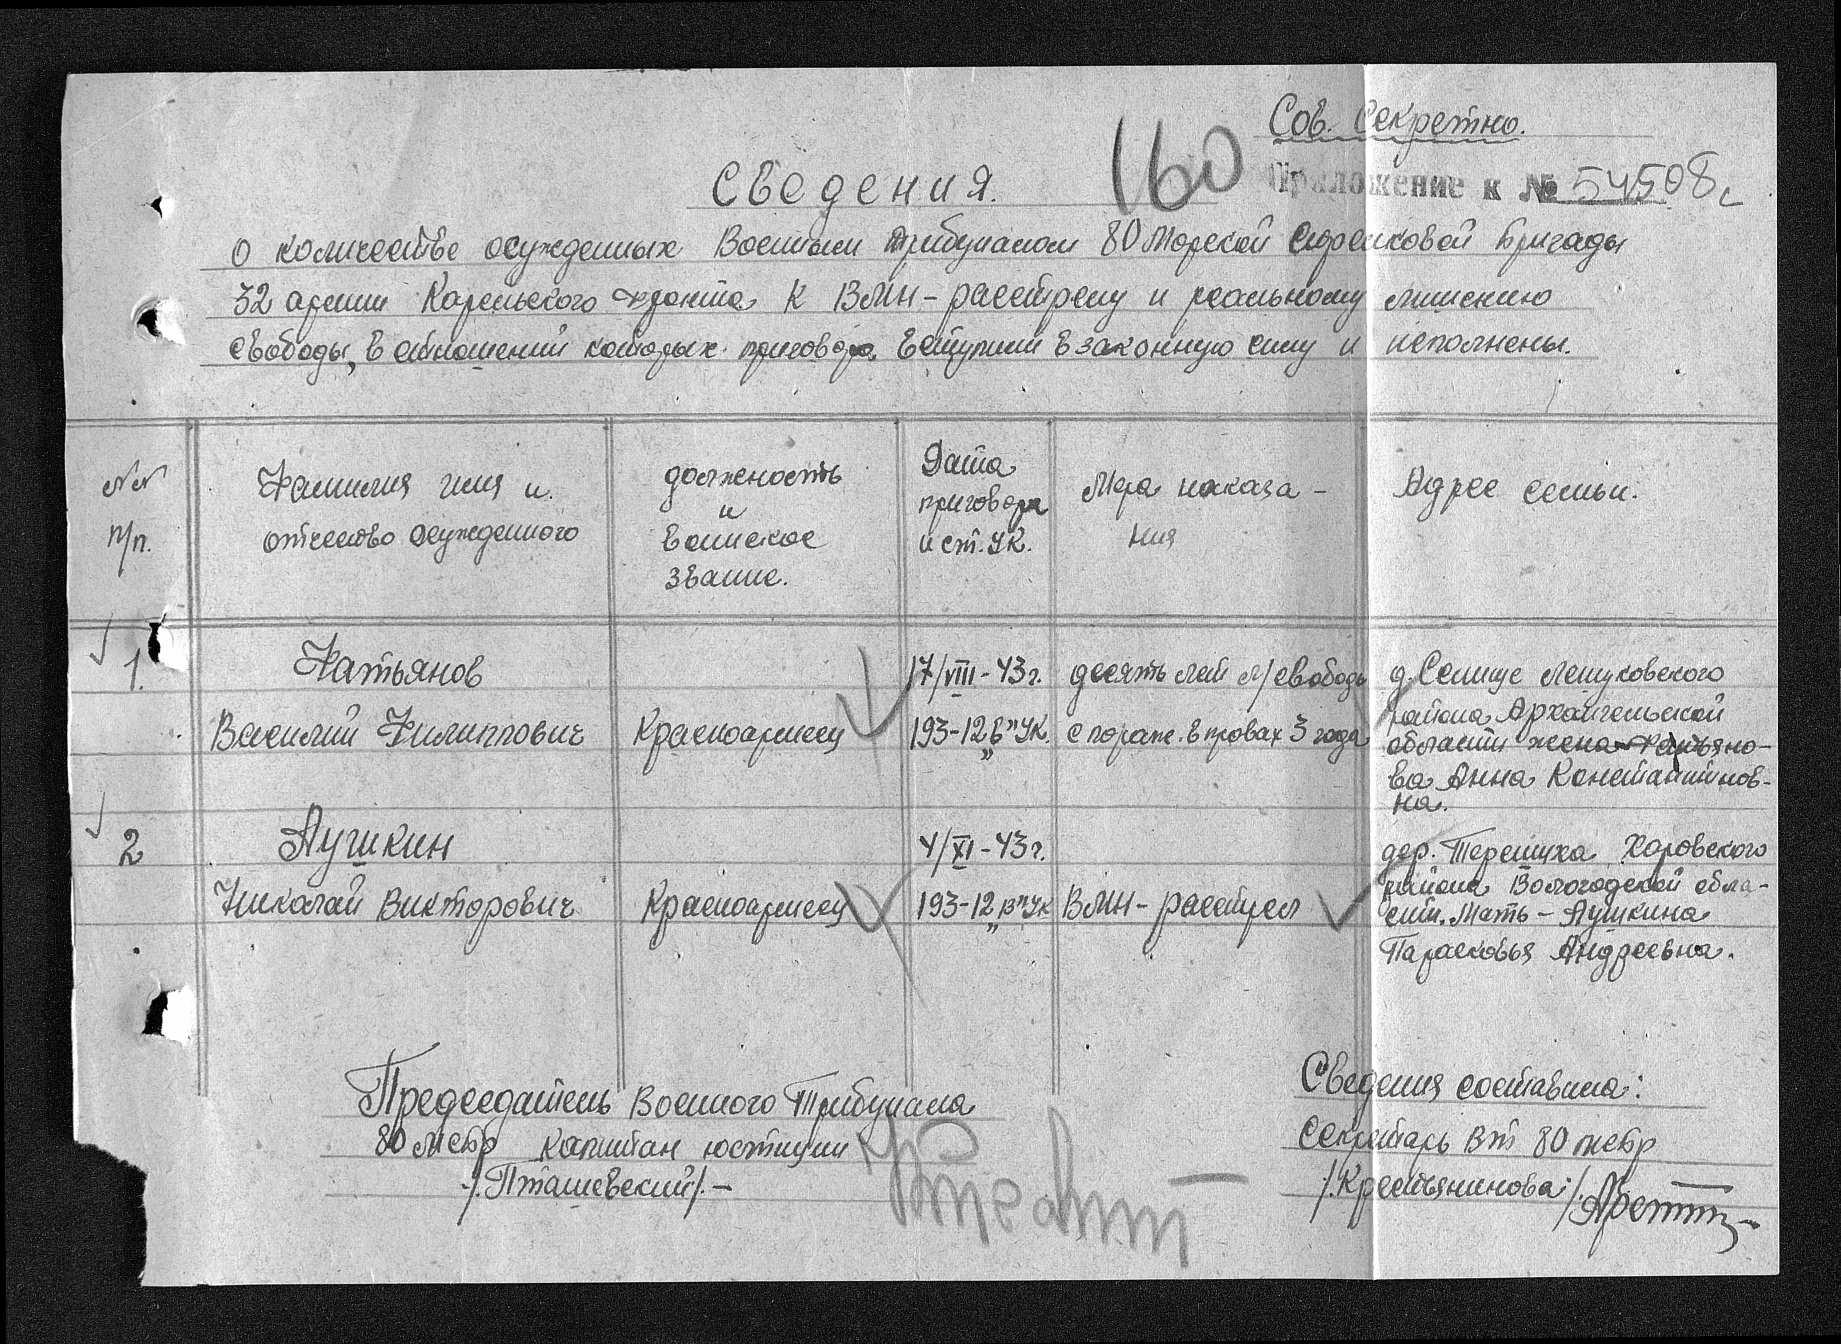 Сов. Секретно.
160
Приложение к № 54508с
Сведения.
о количестве осужденных Военным трибуналом 80 Морской Стрелковой бригады
32 армии Карельского фронта к ВМН-расстрелу и реальному лишению
свободы, в отношении которых приговора вступили в законную силу и исполнены.
№№ п/п.
Фамилия имя и отчество осужденного
должность и воинское звание.
Дата приговора и ст. УК.
Мера наказания
Адрес семьи.
1.
Фатьянов
Василий Филиппович
Красноармеец
17/VIII-43г.
193-12 „в" УК.
десять лет л/свободы
с пораж. в правах 3 года
д. Селище Лешуковского
района Архангельской
области жена Фатьяно-
ва Анна Константинов-
на.
2
Лушкин
Николай Викторович
Красноармеец
4/XI-43г.
193-12 „в" УК
ВМН-расстрел
дер. Терешиха Харовского
района Вологодской обла-
сти. Мать - Лушкина
Парасковья Андреевна.
Председатель Военного Трибунала
80 мсбр капитан юстиции
/.Пташевский/.-
Сведения составила:
Секретарь ВТ 80 мсбр
/.Крестьянинова:/